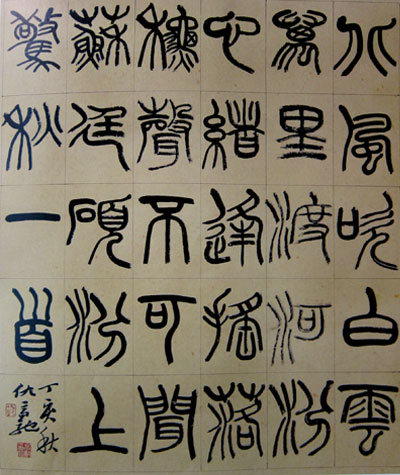 北風吹白雲
萬里渡河汾
心緒逢搖落
穐聲不可聞
蘇廷碩汾上
驚秋一首
丁亥秋